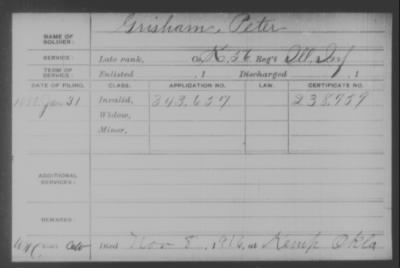 Grisham, Peter
NAME OF SOLDIER:
SERVICE: Late rank, Co. K, 56 Reg't Ill. Inf
TERM OF SERVICE: Enlisted , 1 Discharged , 1
DATE OF FILING. CLASS. APPLICATION NO. LAW. CERTIFICATE NO.
Jan 31 Invalid, 343,657 238,959
Widow,
Minor,
ADDITIONAL SERVICES:
REMARKS:
Died Nov 8, 1916, at Kemp Okla